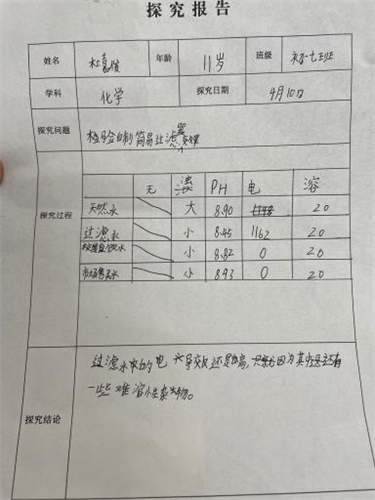 探究报告
姓名 杜 年龄 11岁 班级 初一七班
学科 化学 探究日期 4月10日
探究问题 检验自制简易过滤器
无 浊 PH 电 溶
探究过程 天然水 大 8.90 20
过滤水 小 8.45 1162 20
小 8.82 0 20
市场售卖水 小 8.93 0 20
过滤水中的电 导效 还是 高, 因为其 还有
探究结论 一些难溶性杂物。